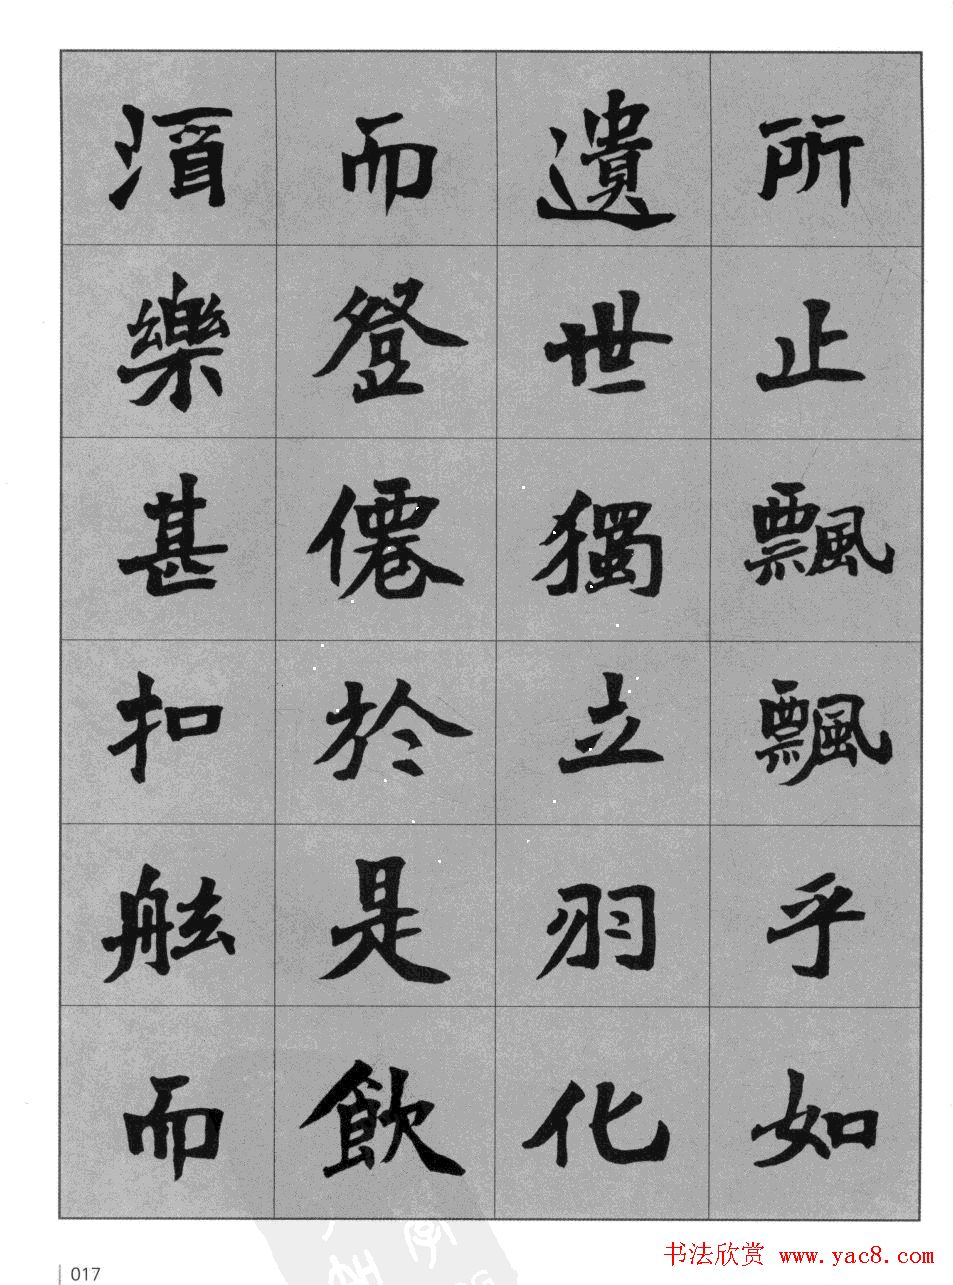 所止飄飄乎如
遺世獨立羽化
而登僊於是飲
酒樂甚扣舷而
书法欣赏 www.yac8.com
017